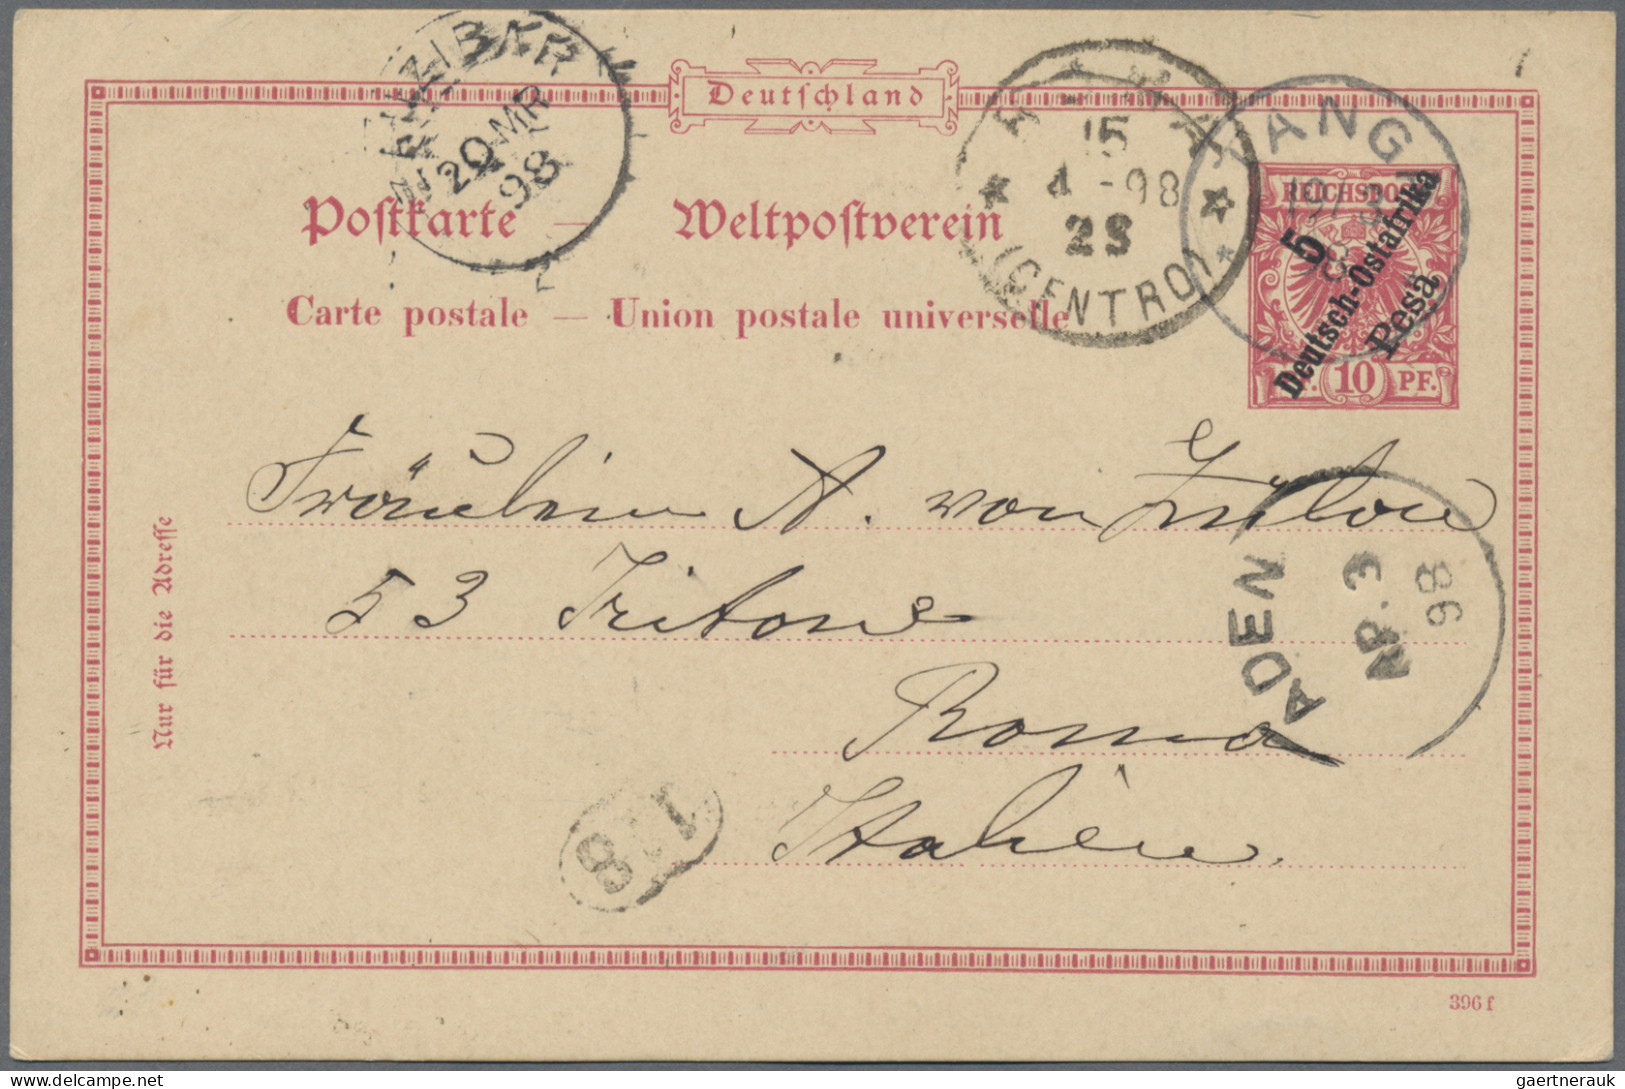 ZANZIBAR
20 MR
98
Deutschland
15
4 - 98
2S
(CENTRO)
TANGA
19/3
98
Postkarte — Weltpostverein
Carte postale — Union postale universelle
REICHSPOST
5
Deutsch-Ostafrika
Pesa
10 PF.
Fräulein A. von
53 Tritone
Roma
Italien
ADEN
AP. 3
98
Nur für die Adresse
396 f
delcampe.net
gaertnerauk